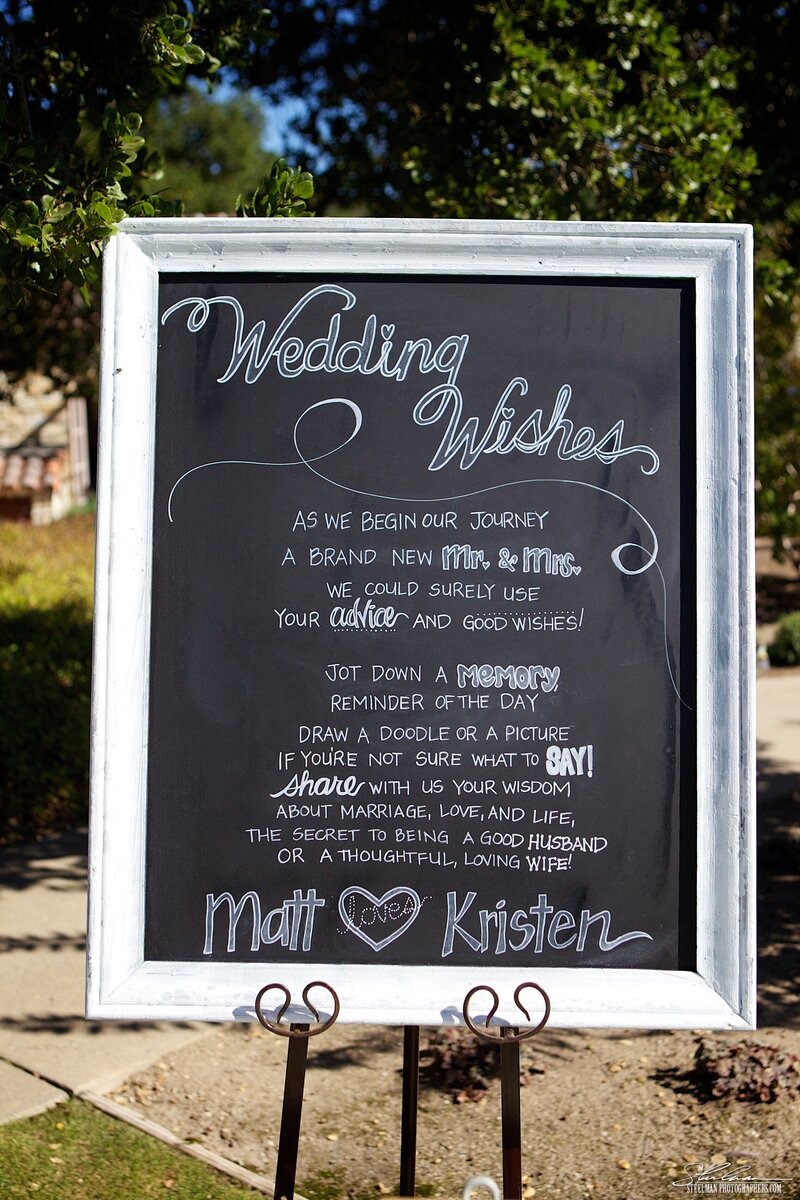 Wedding
Wishes
AS WE BEGIN OUR JOURNEY
A BRAND NEW Mr. & Mrs.
WE COULD SURELY USE
YOUR advice AND GOOD WISHES!
JOT DOWN A MEMORY,
REMINDER OF THE DAY
DRAW A DOODLE OR A PICTURE
IF YOU'RE NOT SURE WHAT TO SAY!
share WITH US YOUR WISDOM
ABOUT MARRIAGE, LOVE, AND LIFE,
THE SECRET TO BEING A GOOD HUSBAND
OR A THOUGHTFUL, LOVING WIFE!
Matt loves Kristen
STEELMAN PHOTOGRAPHERS.COM